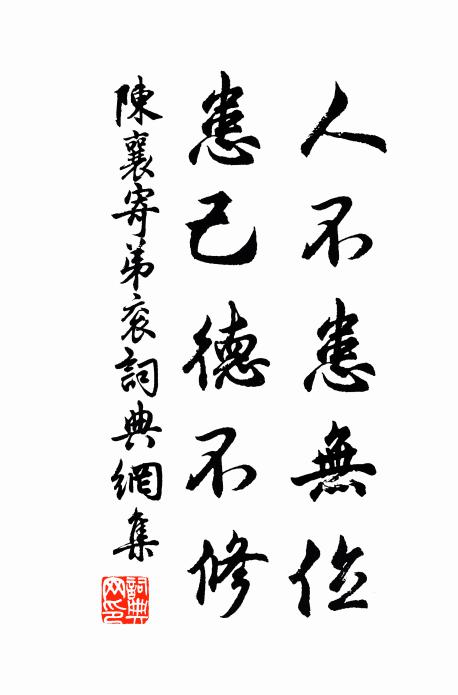 人不患無位
患己德不修
陳襄寄弟衮詞典網集
詞典網印